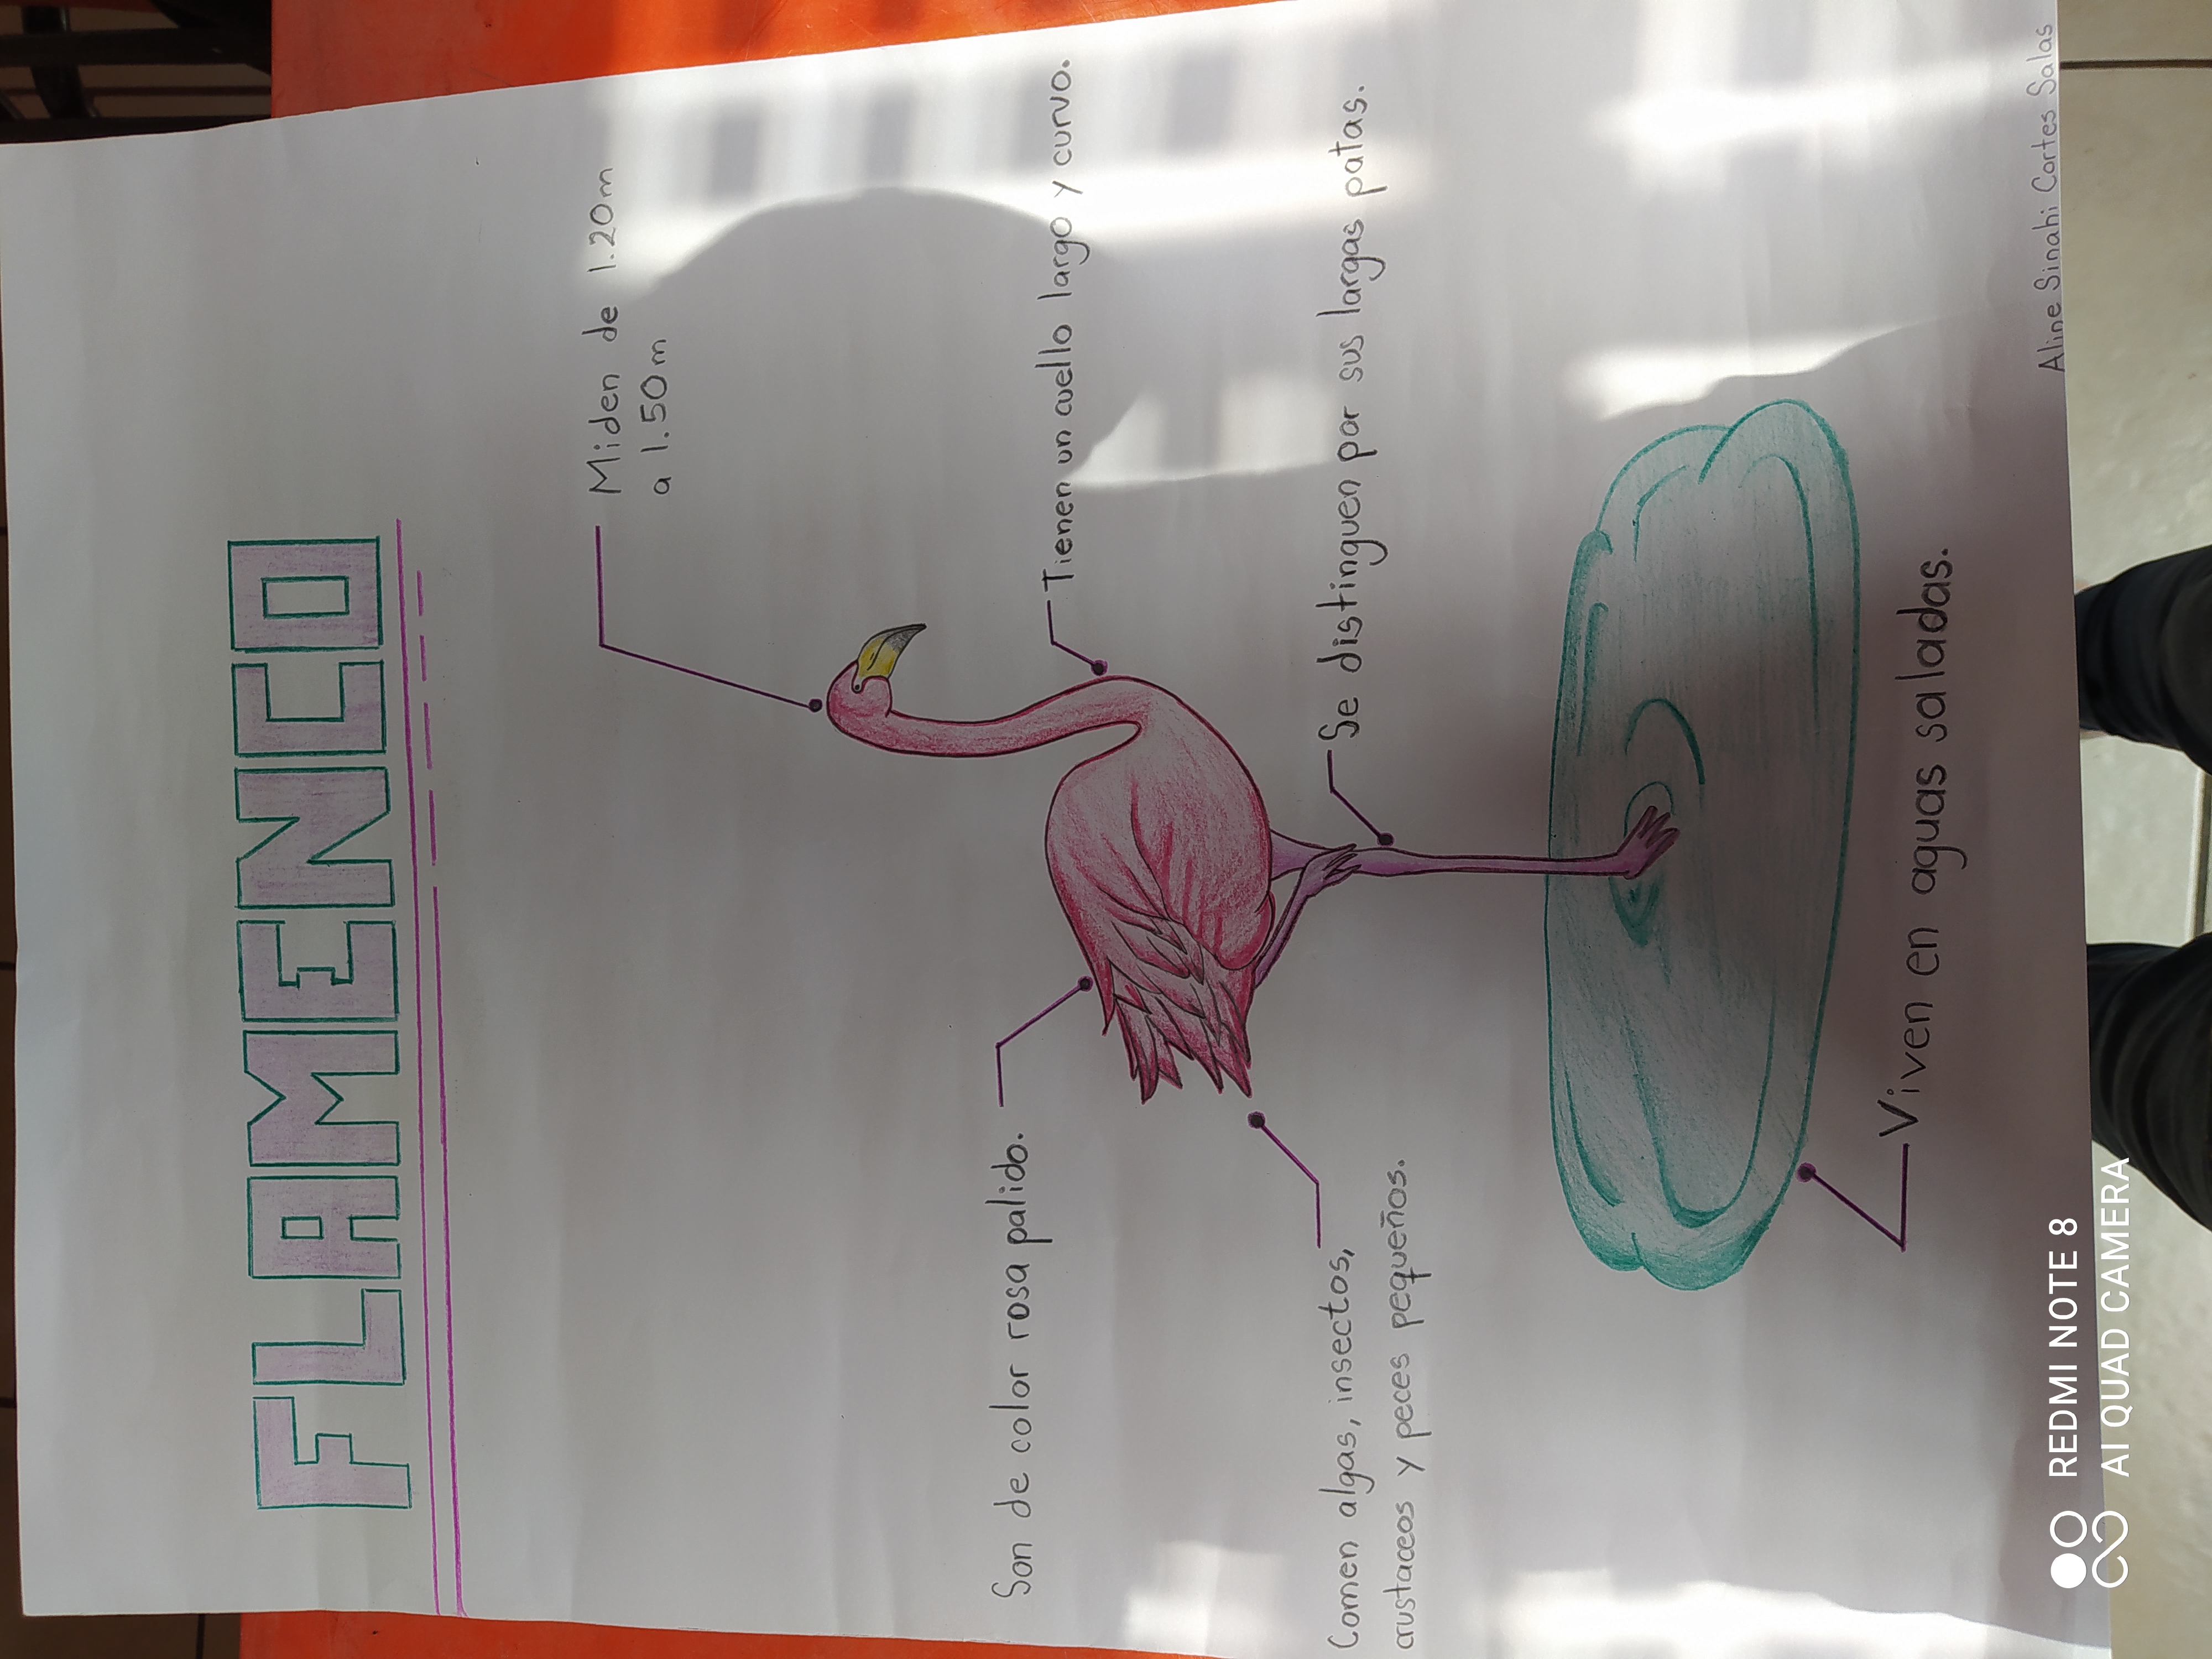 FLAMENCO
Miden de 1.20m
a 1.50m
Tienen un cuello largo y curvo.
Son de color rosa palido.
Se distinguen por sus largas patas.
Comen algas, insectos,
crustaceos y peces pequeños.
Viven en aguas saladas.
Aline Sinahi Cortes Salas
REDMI NOTE 8
AI QUAD CAMERA